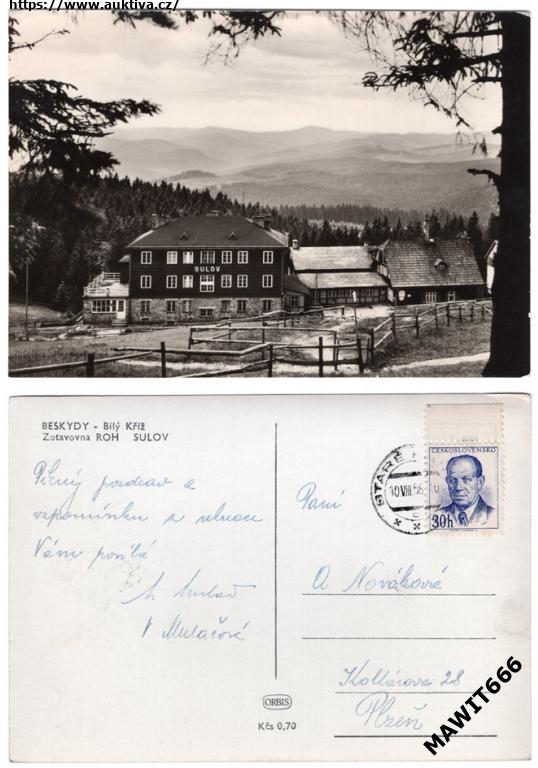 https://www.auktiva.cz/
SULOV
BESKYDY - Bílý Kříž
Zotavovna ROH SULOV
Pěkný pozdrav a
vzpomínku z rekreace
Vám posílá
V Mulačová
STARÉ
10.VIII.56
ČESKOSLOVENSKO
30h
Paní
A Nováková
Kollárova 28
Plzeň
ORBIS
Kčs 0,70
MAWIT666